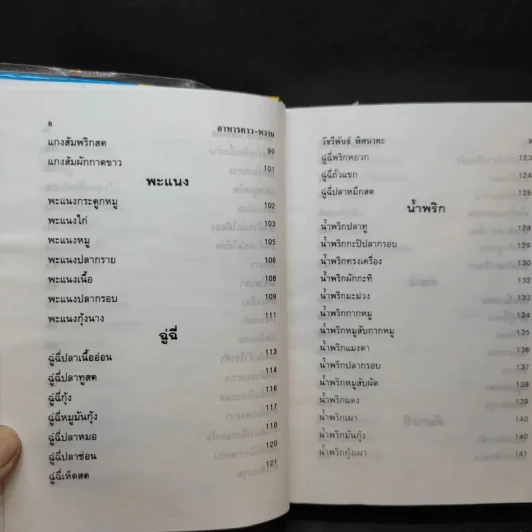 ๘ อาหารคาว-หวาน
แกงส้มพริกสด 99
แกงส้มผักกาดขาว 101
พะแนง
พะแนงกระดูกหมู 102
พะแนงไก่ 103
พะแนงหมู 105
พะแนงปลากราย 106
พะแนงเนื้อ 108
พะแนงปลากรอบ 109
พะแนงกุ้งนาง 111
ฉู่ฉี่
ฉู่ฉี่ปลาเนื้ออ่อน 113
ฉู่ฉี่ปลาทูสด 114
ฉู่ฉี่กุ้ง 116
ฉู่ฉี่หมูมันกุ้ง 117
ฉู่ฉี่ปลาหมอ 119
ฉู่ฉี่ปลาช่อน 120
ฉู่ฉี่เห็ดสด 121
วัชรีพันธ์
ฉู่ฉี่พริกหยวก 123
ฉู่ฉี่ถั่วแขก 124
ฉู่ฉี่ปลาหมึกสด 125
น้ำพริก
น้ำพริกปลาทู 128
น้ำพริกกะปิปลากรอบ 129
น้ำพริกทรงเครื่อง 130
น้ำพริกผักกะทิ 132
น้ำพริกมะม่วง 133
น้ำพริกกากหมู 134
น้ำพริกหมูสับกากหมู 135
น้ำพริกแมงดา 136
น้ำพริกปลากรอบ 137
น้ำพริกหมูสับผัด 138
น้ำพริกแดง 139
น้ำพริกเผา 140
น้ำพริกมันกุ้ง 140
น้ำพริกกุ้งเผา 141